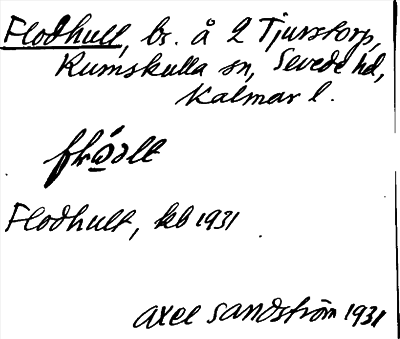 Flodhult, bs. å 2 Tjurstorp,
Rumskulla sn, Sevede hd,
Kalmar l.
Flodhult, kb 1931
Axel Sandström 1931